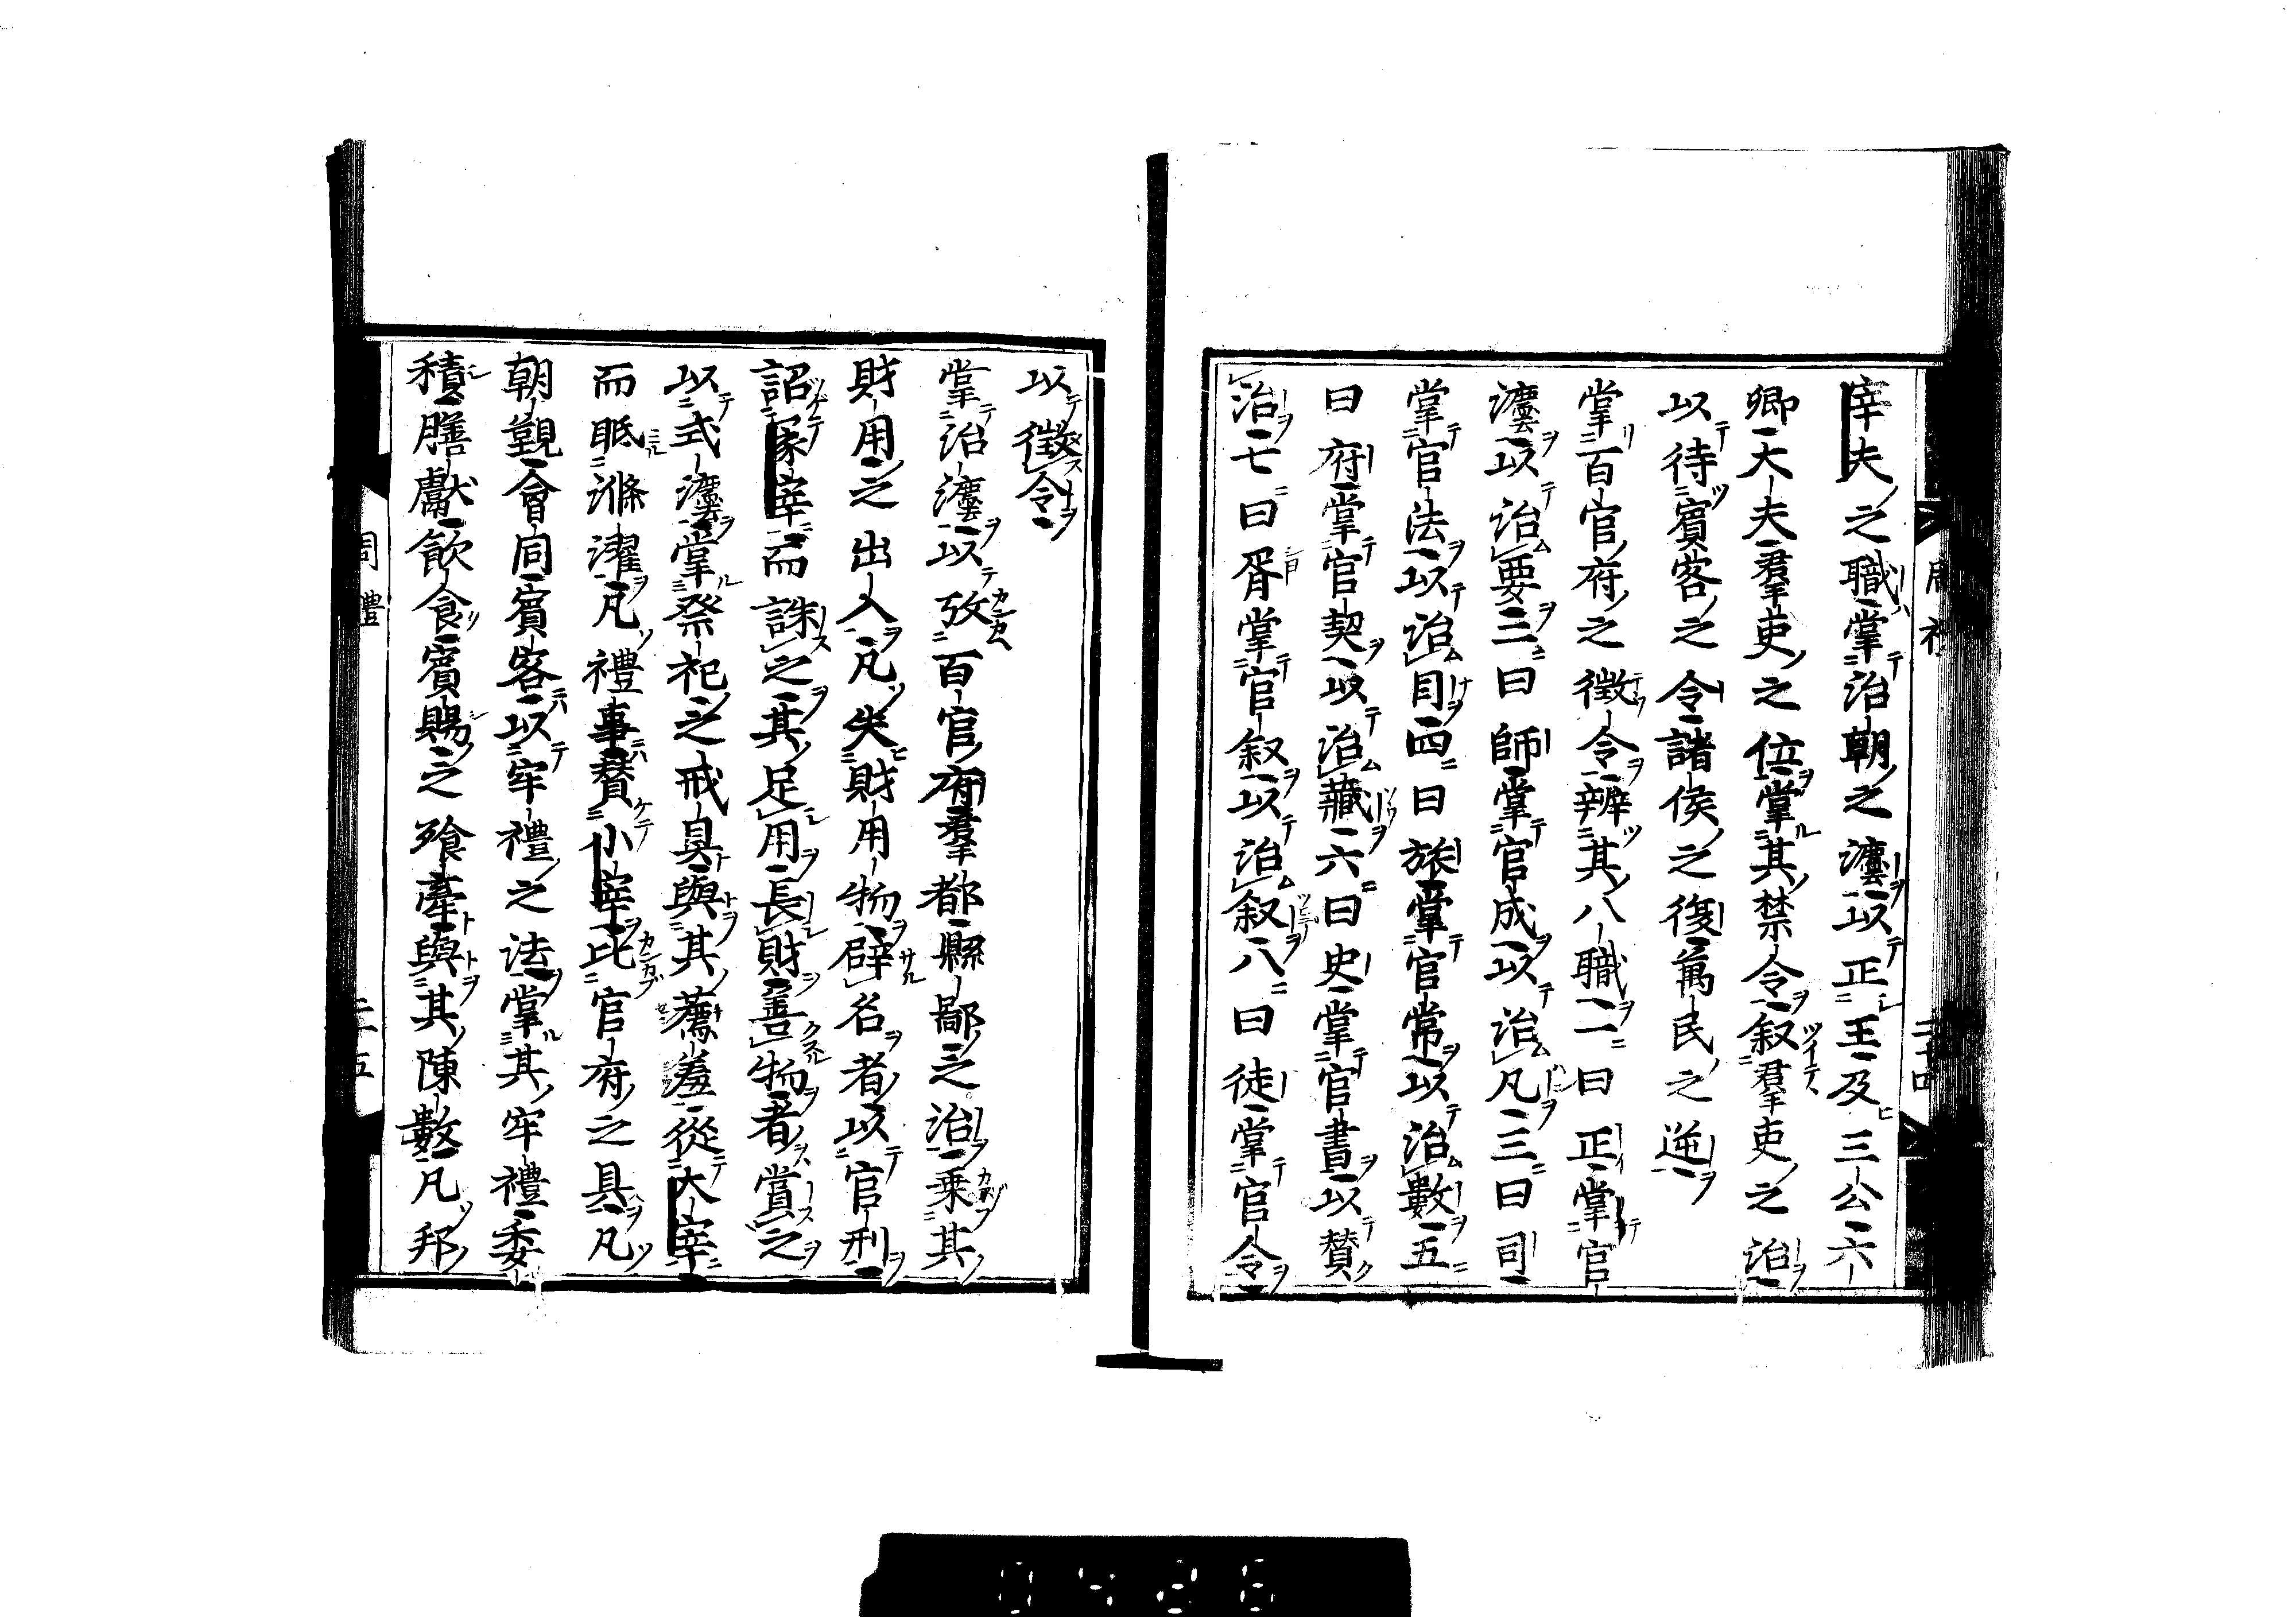 宰夫之職掌治朝之灋以正王及三公六
卿大夫羣吏之位掌其禁令叙羣吏之治
以待賓客之令諸侯之復萬民之逆
掌百官府之徵令辨其八職一曰正掌官
灋以治要二曰師掌官成以治凡三曰司
掌官法以治目四曰旅掌官常以治數五
曰府掌官契以治藏六曰史掌官書以贊
治七曰胥掌官叙以治叙八曰徒掌官令
周禮
以徵令
掌治灋以攷百官府羣都縣鄙之治乗其
財用之出入凡失財用物辟名者以官刑
詔冢宰而誅之其足用長財善物者賞之
以式灋掌祭祀之戒具與其薦羞從大宰
而眂滌濯凡禮事贊小宰比官府之具凡
朝覲會同賓客以牢禮之法掌其牢禮委
積膳獻飲食賓賜之飧牽與其陳數凡邦
0426